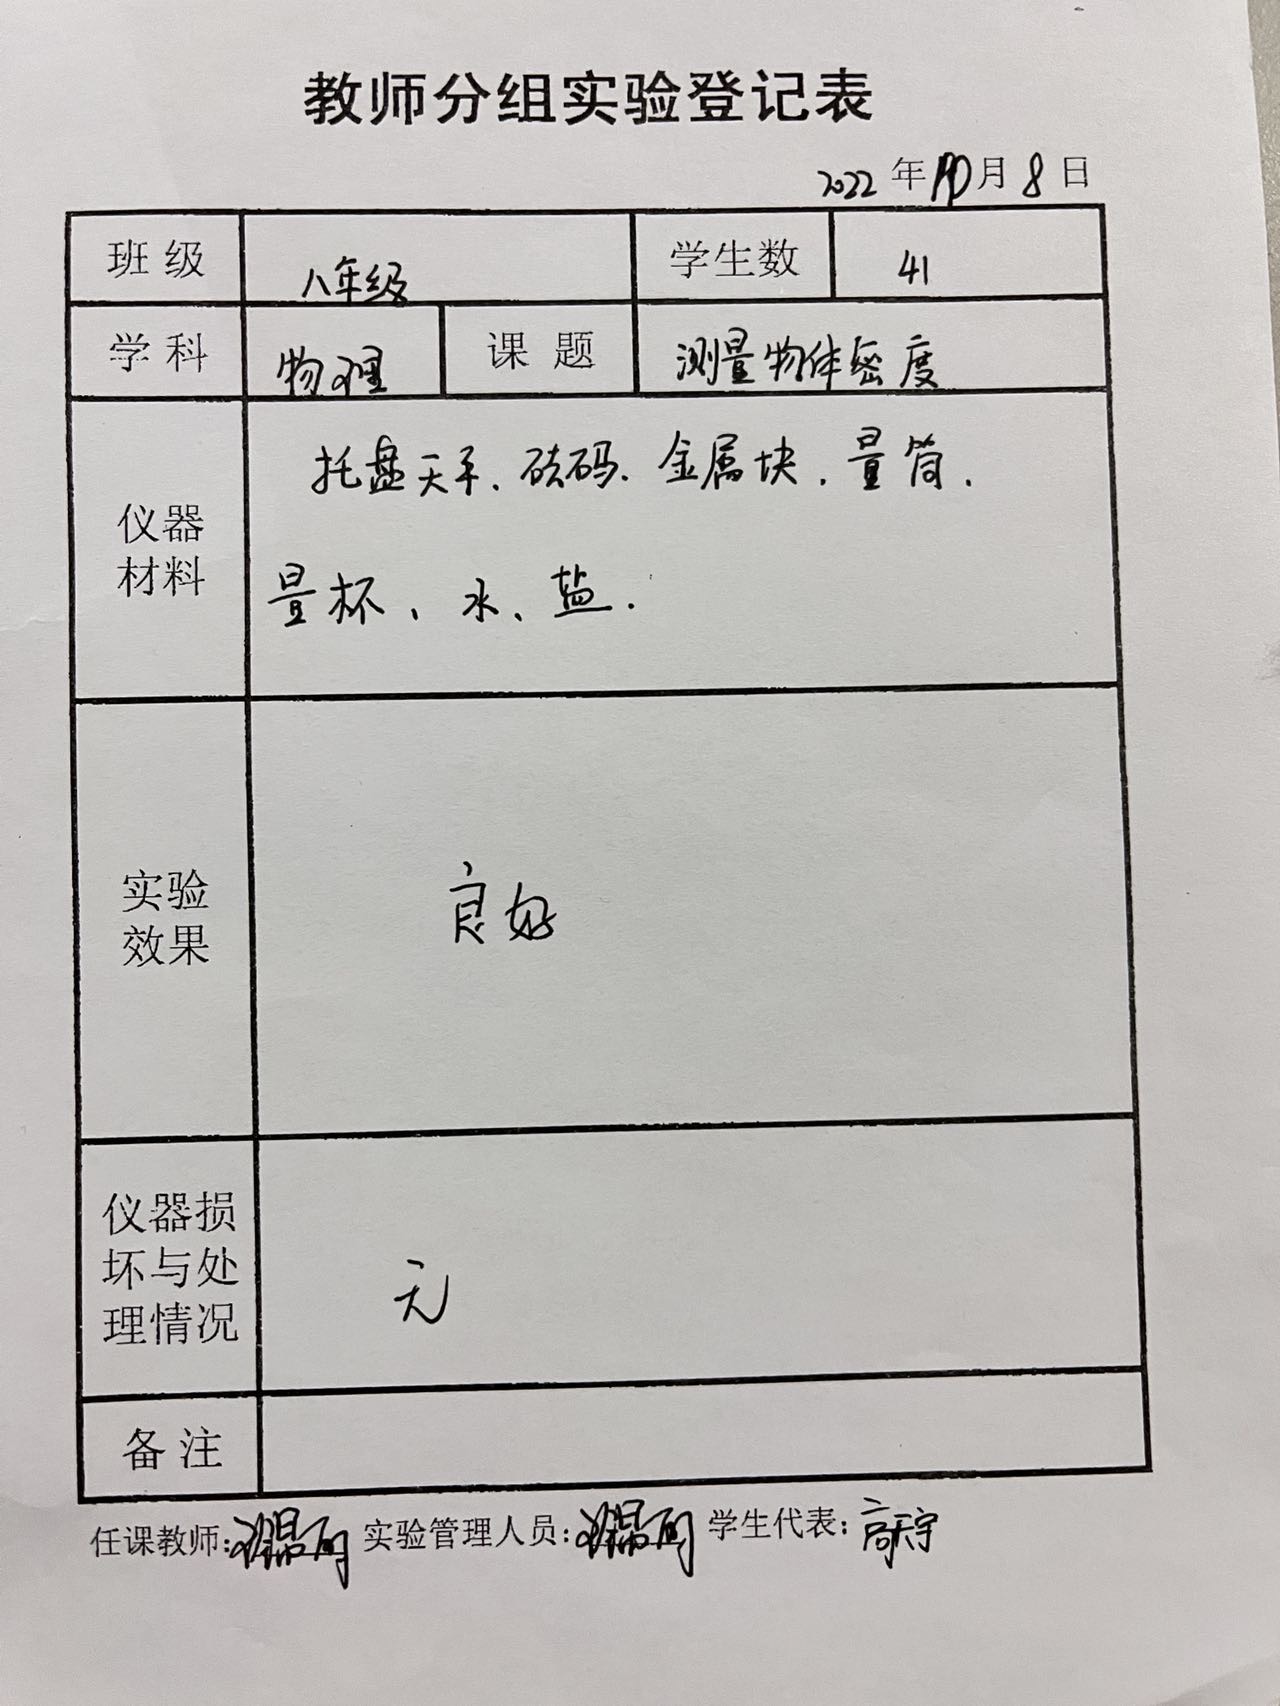 教师分组实验登记表
2022 年 10 月 8 日
班级 八年级 学生数 41
学科 物理 课题 测量物体密度
仪器材料 托盘天平、砝码、金属块、量筒、
量杯、水、盐.
实验效果 良好
仪器损坏与处理情况 无
备注
任课教师: 实验管理人员: 学生代表: 高天宇